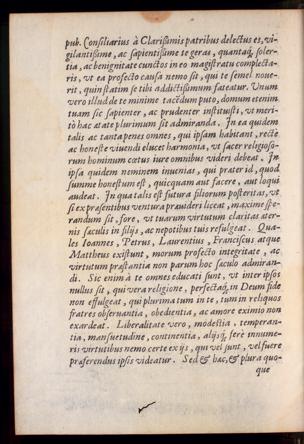 pub. Consiliarius à Clarissimis patribus delectus es, vi-
gilantissime, ac sapientissime te geras, quantaq́; soler-
tia, ac benignitate cunctos in eo magistratu complecta-
ris, vt ea profecto causa nemo sit, qui te semel noue-
rit, quin statim se tibi addictissimum fateatur. Vnum
vero illud de te minime tacẽdum puto, domum etenim
tuam sic sapienter, ac prudenter instituisti, vt meri-
tò hac ætate plurimum sit admiranda. In ea quidem
talis ac tanta penes omnes, qui ipsam habitant, rectè
ac honeste viuendi elucet harmonia, vt sacer religioso-
rum hominum cœtus iure omnibus videri debeat. In
ipsa quidem neminem inuenias, qui præter id, quod
summe honestum est, quicquam aut facere, aut loqui
audeat. In qua talis est futura filiorum posteritas, vt
si ex præsentibus ventura præuideri liceat, maxime spe-
randum sit, fore, vt tuarum virtutum claritas æter-
nis sæculis in filijs, ac nepotibus tuis refulgeat. Qua-
les Ioannes, Petrus, Laurentius, Franciscus atque
Mattheus existunt, morum profecto integritate, ac
virtutum præstantia non parum hoc sæculo admiran-
di. Sic enim à te omnes educati sunt, vt inter ipsos
nullus sit, qui vera religione, perfectaq́; in Deum fide
non effulgeat, qui plurima tum in te, tum in reliquos
fratres obseruantia, obedientia, ac amore eximio non
exardeat. Liberalitate vero, modestia, temperan-
tia, mansuetudine, continentia, alijsq́; ferè innume-
ris virtutibus nemo certe ex ijs, qui vel sunt, vel fuere
præferendus ipsis videatur. Sed & hæc, & plura quo-
que